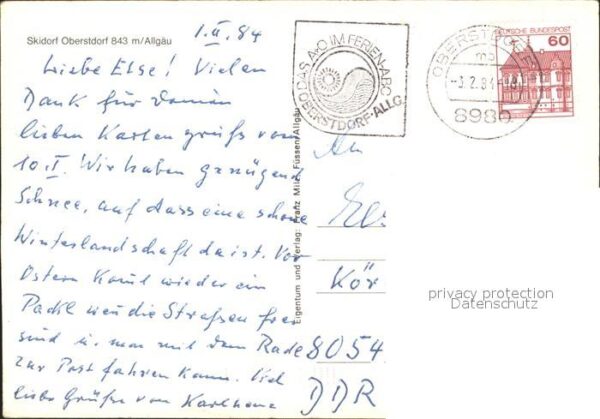 Skidorf Oberstdorf 843 m/Allgäu
1.II.84
Liebe Else! Vielen
Dank für Deinen
lieben Kartengruß vom
10.I. Wir haben genügend
Schnee, auf dass eine schöne
Winterlandschaft da ist. Vor
Ostern komt wieder ein
Packl wen die Straßen frei
sind u. man mit dem Rade
zur Post fahren kann. Viel
liebe Grüße von Karlheinz
Eigentum und Verlag: Franz Milz, Füssen/Allgäu
DAS A+O IM FERIEN-ABC
OBERSTDORF-ALLG.
OBERSTDORF
-3.2.84
8980
DEUTSCHE BUNDESPOST
60
An
Kör
8054
DDR
privacy protection
Datenschutz